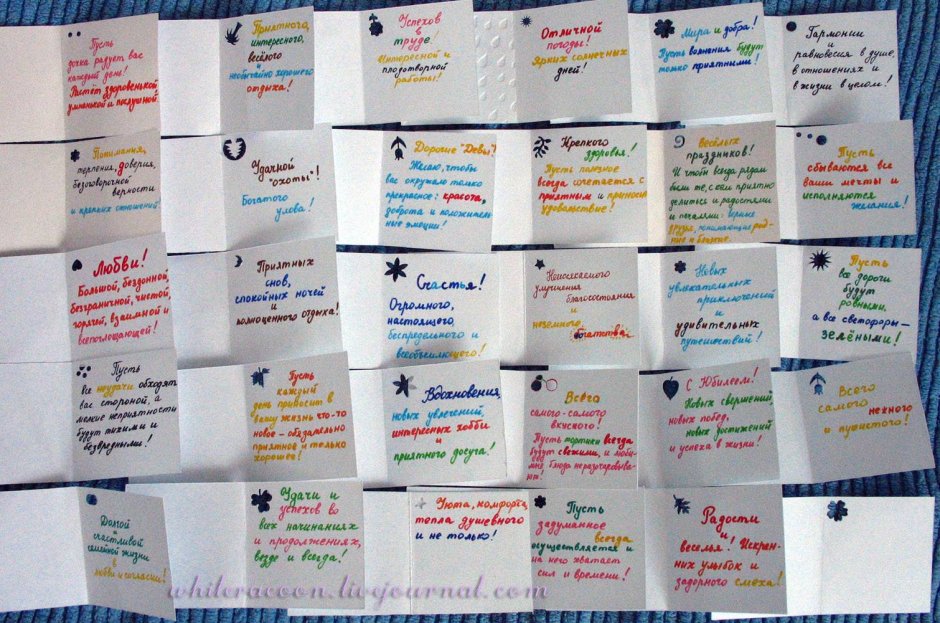 Пусть
дочка радует вас
каждый день!
Растёт здоровенькой
умненькой и послушной.
Приятного,
интересного,
весёлого
и
необычайно хорошего
отдыха!
Успехов
в
труде!
Интересной и
плодотворной
работы!
Отличной
погоды!
Ярких солнечных
дней!
Мира и добра!
Пусть волнения будут
только приятными!
Гармонии
и
равновесия в душе,
в отношениях и
в жизни в целом!
Понимания,
терпения, доверия,
безоговорочной
верности
и крепких отношений
Удачной
"охоты"!
Богатого
улова!
Дорогие "Девы"!
Желаю, чтобы
вас окружало только
прекрасное: красота,
доброта и положитель-
ные эмоции!
Крепкого
здоровья!
Пусть полезное
всегда сочетается с
приятным и приносит
удовольствие!
Весёлых
праздников!
И чтобы всегда рядом
были те, с кем приятно
делиться и радостями
и печалями: верные
друзья, понимающие род-
ные и близкие.
Пусть
сбываются все
ваши мечты и
исполняются
желания!
Любви!
Большой, бездонной,
безграничной, чистой,
горячей, взаимной и
всепоглощающей!
Приятных
снов,
спокойных ночей
и
полноценного отдыха!
Счастья!
Огромного,
настоящего,
беспредельного и
всеобъемлющего!
Неиссякаемого
улучшения
благосостояния
и
неземного
богатства!
Новых
увлекательных
приключений
и
удивительных
путешествий!
Пусть
все дороги
будут
ровными,
а все светофоры –
зелёными!
Пусть
все неудачи обходят
вас стороной, а
мелкие неприятности
будут тихими и
безвредными!
Пусть
каждый
день приносит в
вашу жизнь что-то
новое – обязательно
приятное и только
хорошее!
Вдохновения,
новых увлечений,
интересных хобби
и
приятного досуга!
Всего
самого-самого
вкусного!
Пусть тортики всегда
будут свежими, и люби-
мые блюда
С Юбилеем!
Новых свершений,
новых побед,
новых достижений
и успеха в жизни!
Всего
самого нежного
и пушистого!
Долгой
и
счастливой
семейной жизни
в
любви и согласии!
Удачи и
успехов во
всех начинаниях
и продолжениях,
везде и всегда!
Уюта, комфорта,
тепла душевного
и не только!
Пусть
задуманное
всегда
осуществляется и
на него хватает
сил и времени!
Радости
и
веселья! Искрен-
них улыбок и
задорного смеха!
whiteracoon.livejournal.com